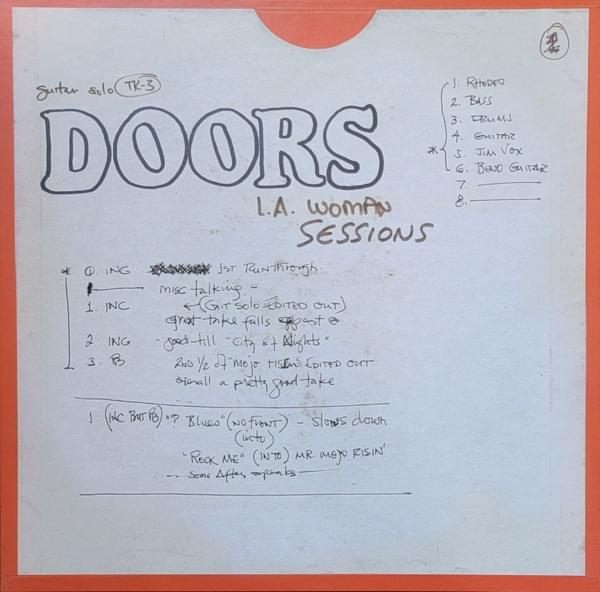 guitar solo TK-3
DOORS
L.A. WOMAN
SESSIONS
1. RHODES
2. BASS
3. DRUMS
4. GUITAR
* 5. JIM VOX
6. BEND GUITAR
7.
8.
* 0. ING 1ST RUNTHROUGH.
misc talking -
1. INC ← (GIT SOLO EDITED OUT)
great take falls apart @
2. ING good till "City of Nights"
3. PB 2ND 1/2 of "MOJO RISIN" EDITED OUT
overall a pretty good take
1 (INC BUT PB) "? Blues" (NO FRONT) - SLOWS down
(into)
"ROCK ME" (INTO) MR MOJO RISIN'
-- some After speaks